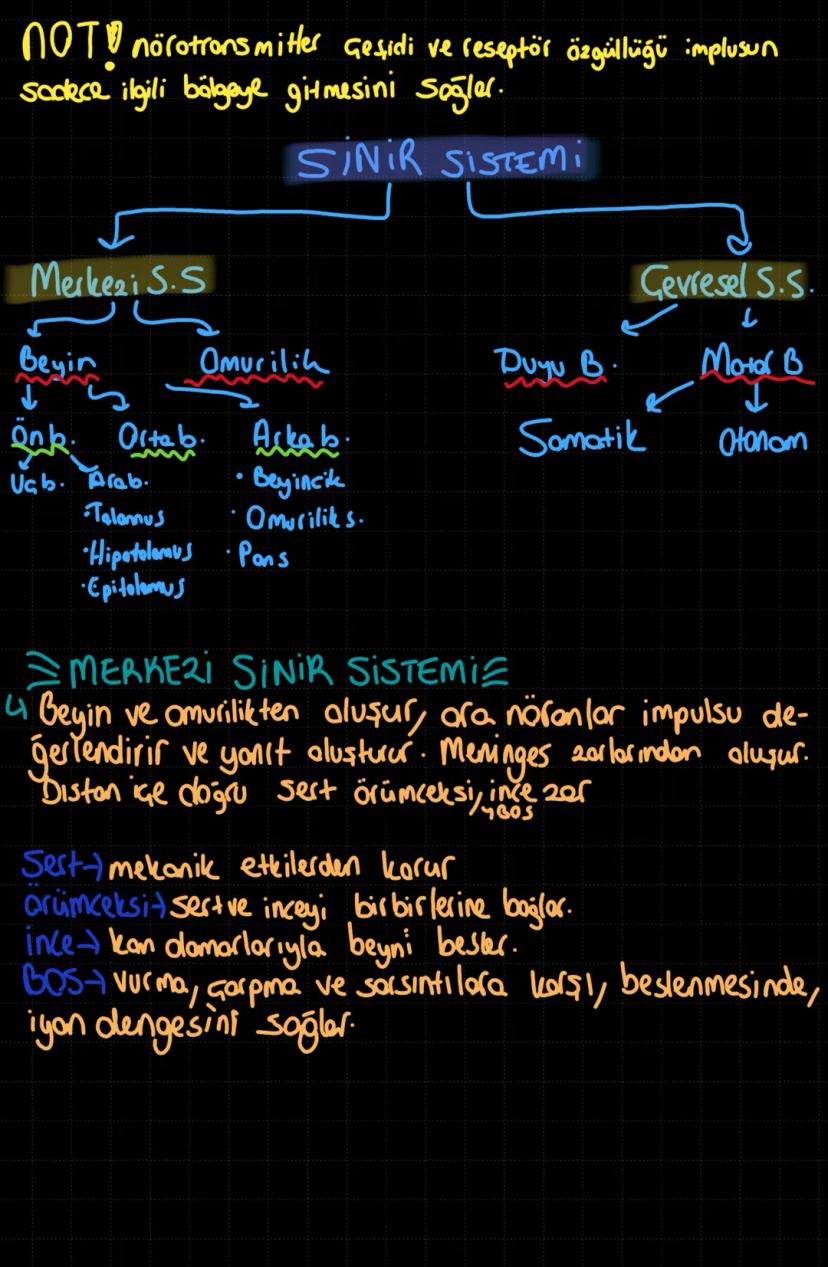 NOT! nörotransmitter çeşidi ve reseptör özgüllüğü implusun
sadece ilgili bölgeye gitmesini sağlar.
SİNİR SİSTEMİ
Merkezi S.S
Çevresel S.S.
Beyin
Omurilik
Duyu B.
Motor B
Önb.
Ortab.
Arkab.
Somatik
Otonom
Uçb.
Arab.
• Beyincik
• Talamus
• Omurilik s.
• Hipotalamus
• Pons
• Epitalamus
MERKEZİ SİNİR SİSTEMİ
↳ Beyin ve omurilikten oluşur, ara nöronlar impulsu de-
ğerlendirir ve yanıt oluşturur. Meninges zarlarından oluşur.
Dıştan içe doğru sert örümceksi, ince zar
↳BOS
Sert→ mekanik etkilerden korur
örümceksi→ sert ve inceyi birbirlerine bağlar.
ince→ kan damarlarıyla beyni besler.
BOS→ vurma, çarpma ve sarsıntılara karşı, beslenmesinde,
iyon dengesini sağlar.